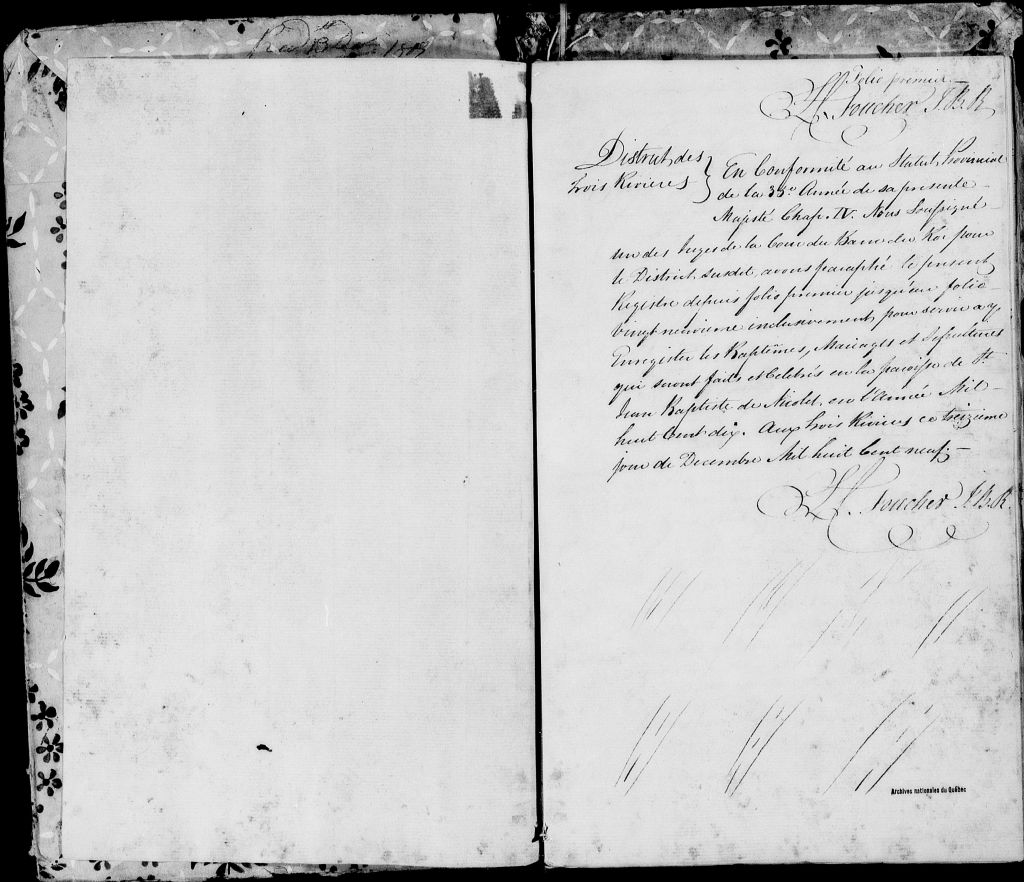 Folio premier
L. C. Foucher J.B.R
District des
Trois Rivieres } En Conformité au Statut Provincial
de la 35e. Année de sa presente
Majesté Chap. IV. Nous Soussigné
un des Juges de la Cour du Banc du Roi pour
le District susdit, avons paraphé le present
Registre depuis folio premier jusqu'au folio
vingt neuvieme inclusivement, pour servir a y
Enregistrer les Baptêmes, Mariages et Sepultures
qui seront faits et Celebrés en la paroisse de St.
Jean Baptiste de Nicolet, en l'Année Mil
huit Cent dix. Aux trois Rivieres ce treizieme
jour de Decembre Mil huit Cent neuf.
L. C. Foucher J.B.R.
Archives nationales du Québec